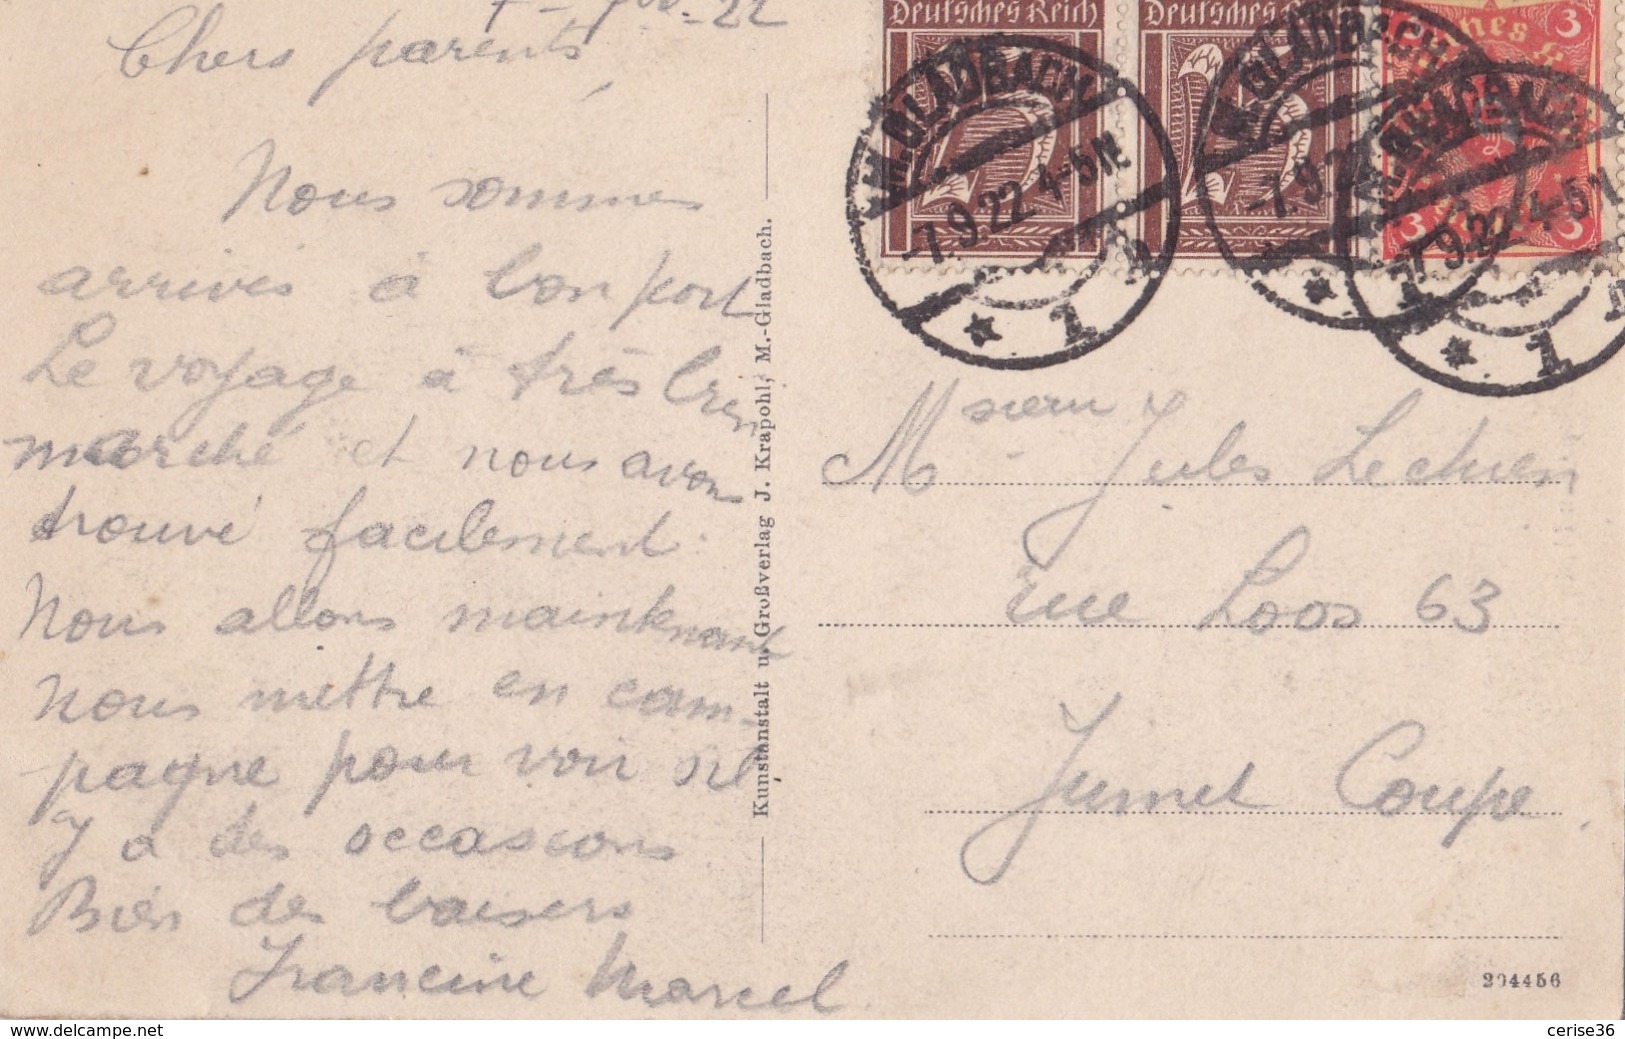 7 - - 22
Chers parents,
Nous sommes
arrivés à bon port
Le voyage à très bien
marché et nous avons
trouvé facilement.
Nous allons maintenant
nous mettre en cam-
pagne pour voir s'il
y a des occasions
Bien des baisers
Francine Marcel
Kunstanstalt u. Großverlag J. Krapohl, M.-Gladbach.
Deutsches Reich
Deutsches Reich
3
3 3
M.GLADBACH
-7.9.22 4-5 N.
* 1
M.GLADBACH
-7.9.22
* 1
M.GLADBACH
-7.9.22 4-5 N
* 1
Monsieur Jules Lechien
Rue Loos 63
Jumet Coupe.
204456
delcampe.net
cerise36